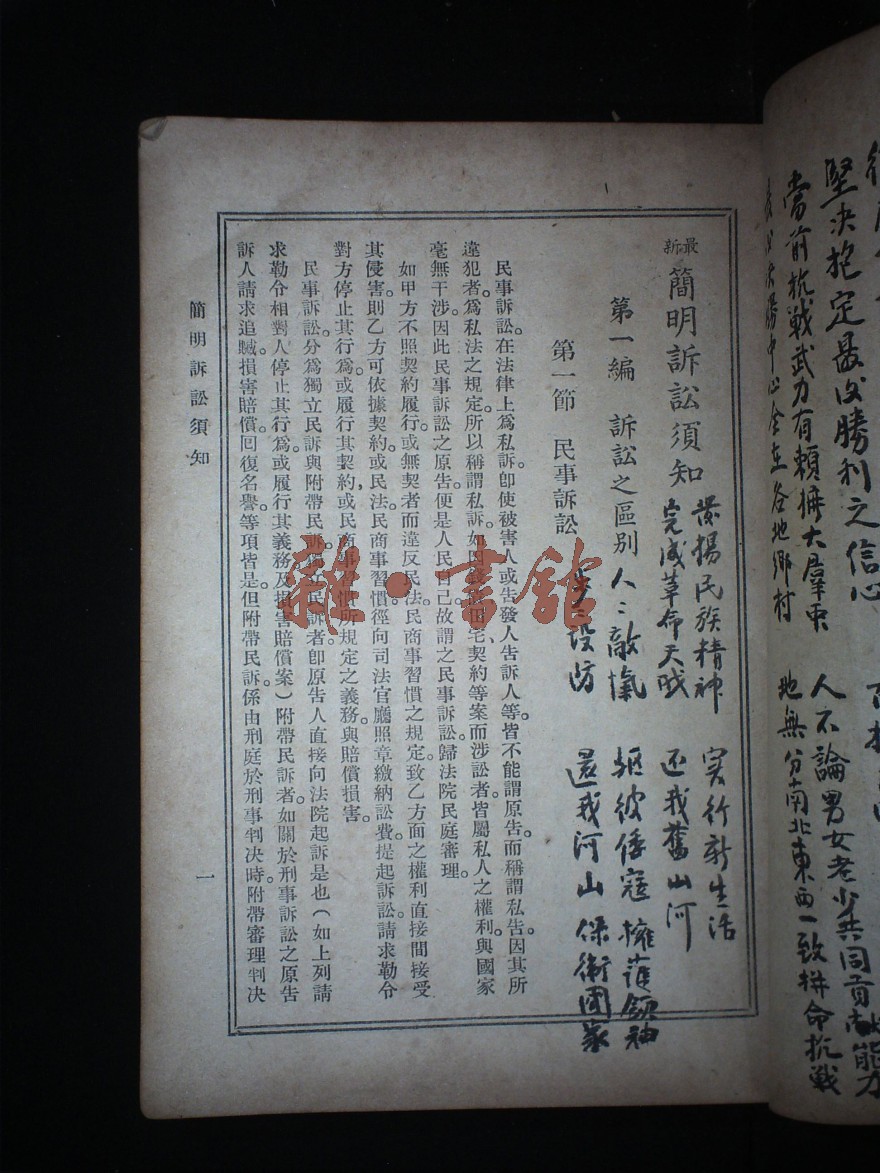 堅決抱定最後勝利之信心
當前抗戰武力有賴擴大羣衆
全在各地鄉村
人不論男女老少共同貢献能力
地無分南北東西一致拼命抗戰
最新簡明訴訟須知
發揚民族精神 實行新生活
完成革命天職 还我舊山河
第一編 訴訟之區別
人人敵愾 驅彼倭寇 擁護領袖
第一節 民事訴訟
步步設防 還我河山 保衛國家
民事訴訟。在法律上爲私訴。卽使被害人或告發人告訴人等。皆不能謂原告。而稱謂私告。因其所
違犯者。爲私法之規定。所以稱謂私訴。如因錢債田宅契約等案而涉訟者。皆屬私人之權利。與國家
毫無干涉。因此民事訴訟之原告。便是人民自己。故謂之民事訴訟。歸法院民庭審理。
如甲方不照契約履行。或無契者而違反民法。民商事習慣之規定。致乙方面之權利直接間接受
其侵害。則乙方可依據契約。或民法。民商事習慣。徑向司法官廳照章繳納訟費。提起訴訟。請求勒令
對方停止其行爲。或履行其契約或民商事習慣所規定之義務與賠償損害。
民事訴訟分爲獨立民訴與附帶民訴。獨立民訴者。卽原告人直接向法院起訴是也（如上列請
求勒令相對人停止其行爲。或履行其義務及損害賠償案）附帶民訴者。如關於刑事訴訟之原告
訴人請求追贓。損害賠償。回復名譽。等項皆是。但附帶民訴。係由刑庭於刑事判决時。附帶審理判決
簡明訴訟須知
一
雜·書館